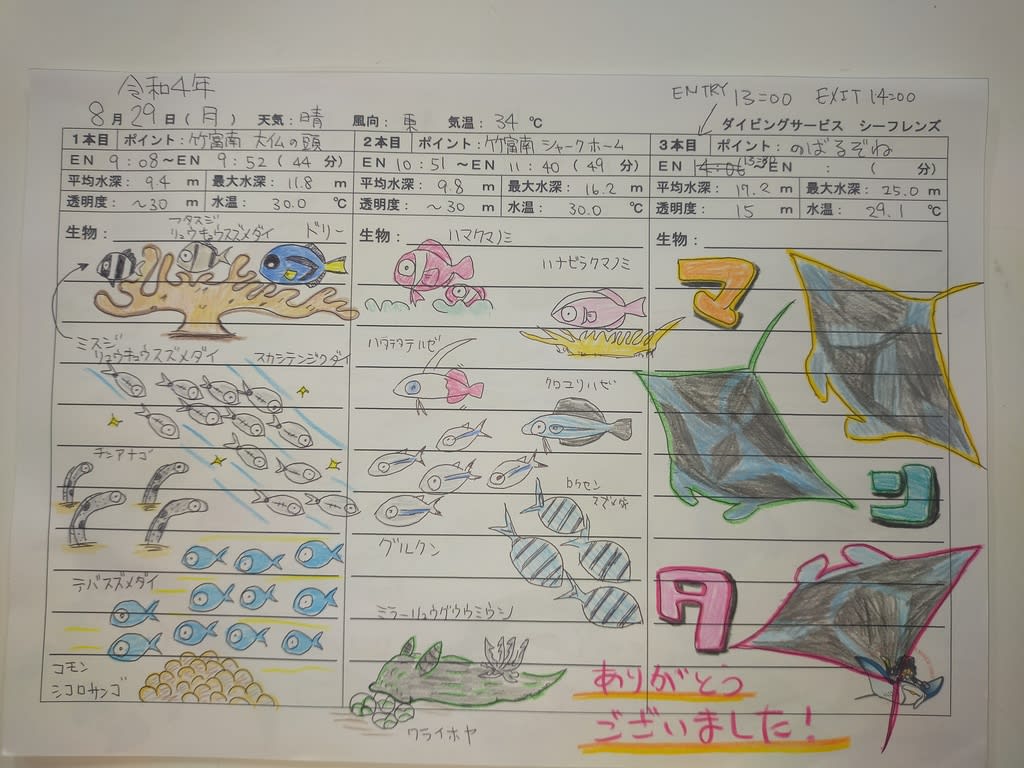 令和4年
ENTRY 13=00 EXIT 14=00
8月29日(月) 天気:晴 風向:東 気温:34℃
ダイビングサービス シーフレンズ
1本目 ポイント:竹富南 大仏の頭
EN 9:08~EN 9:52(44分)
平均水深:9.4m 最大水深:11.8m
透明度:~30m 水温:30.0℃
生物:
フタスジ
リュウキュウスズメダイ
ドリー
ミスジ
リュウキュウスズメダイ
スカシテンジクダイ
チンアナゴ
デバスズメダイ
コモン
シコロサンゴ
2本目 ポイント:竹富南 シャークホーム
EN 10:51~EN 11:40(49分)
平均水深:9.8m 最大水深:16.2m
透明度:~30m 水温:30.0℃
生物:
ハマクマノミ
ハナビラクマノミ
ハタタテハゼ
クロユリハゼ
ロクセン
スズメダイ
グルクン
ミラーリュウグウウミウシ
ワライホヤ
3本目 ポイント:のばるぞね
EN ~EN : ( 分)
平均水深:17.2m 最大水深:25.0m
透明度:15m 水温:29.1℃
生物:
マ
ン
タ
ありがとう
ございました!